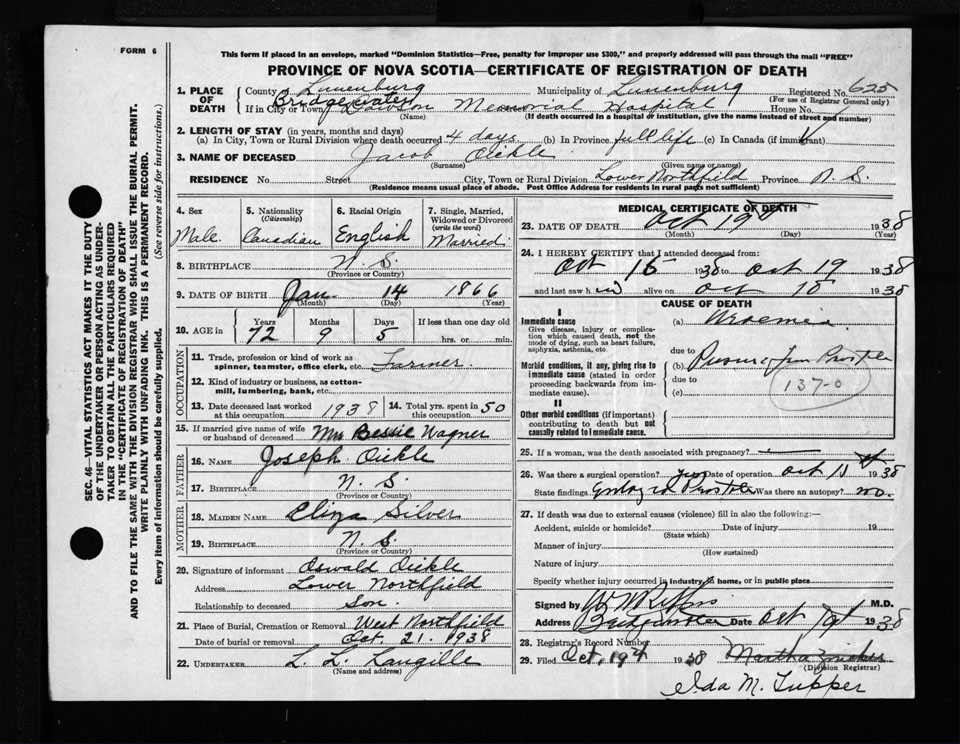 FORM 6
This form if placed in an envelope, marked "Dominion Statistics—Free, penalty for improper use $300," and properly addressed will pass through the mail "FREE"
PROVINCE OF NOVA SCOTIA—CERTIFICATE OF REGISTRATION OF DEATH
SEC. 46—VITAL STATISTICS ACT MAKES IT THE DUTY
OF THE UNDERTAKER OR PERSON ACTING AS UNDER-
TAKER TO OBTAIN ALL THE PARTICULARS REQUIRED
IN THE "CERTIFICATE OF REGISTRATION OF DEATH"
AND TO FILE THE SAME WITH THE DIVISION REGISTRAR WHO SHALL ISSUE THE BURIAL PERMIT.
WRITE PLAINLY WITH UNFADING INK. THIS IS A PERMANENT RECORD.
Every item of information should be carefully supplied. (See reverse side for instructions.)
1. PLACE OF DEATH
County of Lunenburg Municipality of Lunenburg Registered No. 625
(For use of Registrar General only)
If in City or Town Bridgewater Dawson Memorial Hospital House No.
(Name) (If death occurred in a hospital or institution, give the name instead of street and number)
2. LENGTH OF STAY (in years, months and days)
(a) In City, Town or Rural Division where death occurred 4 days (b) In Province full life (c) In Canada (if immigrant)
3. NAME OF DECEASED Jacob Oickle
(Surname) (Given name or names)
RESIDENCE No. Street City, Town or Rural Division Lower Northfield Province N. S.
(Residence means usual place of abode. Post Office Address for residents in rural parts not sufficient)
4. Sex Male
5. Nationality (Citizenship) Canadian
6. Racial Origin English
7. Single, Married, Widowed or Divorced (write the word) Married
8. BIRTHPLACE N. S.
(Province or Country)
9. DATE OF BIRTH Jan. 14 1866
(Month) (Day) (Year)
10. AGE in Years Months Days If less than one day old
72 9 5 hrs. or min.
OCCUPATION
11. Trade, profession or kind of work as spinner, teamster, office clerk, etc. Farmer
12. Kind of industry or business, as cotton-mill, lumbering, bank, etc.
13. Date deceased last worked at this occupation 1938 14. Total yrs. spent in 50
15. If married give name of wife or husband of deceased Mrs Bessie Wagner
FATHER
16. NAME Joseph Oickle
17. BIRTHPLACE N. S.
(Province or Country)
MOTHER
18. MAIDEN NAME Eliza Silver
19. BIRTHPLACE N. S.
(Province or Country)
20. Signature of informant Oswald Oickle
Address Lower Northfield
Relationship to deceased Son.
21. Place of Burial, Cremation or Removal West Northfield
Date of burial or removal Oct. 21. 1938
22. UNDERTAKER L. L. Langille
(Name and address)
MEDICAL CERTIFICATE OF DEATH
23. DATE OF DEATH Oct 19th 1938
(Month) (Day) (Year)
24. I HEREBY CERTIFY that I attended deceased from:
Oct 15 1938 to Oct 19 1938
and last saw him alive on Oct 1938
CAUSE OF DEATH
I
Immediate cause
Give disease, injury or complication which caused death, not the mode of dying, such as heart failure, asphyxia, asthenia, etc.
(a) Uraemia
due to
Morbid conditions, if any, giving rise to immediate cause (stated in order proceeding backwards from immediate cause).
(b) Pressure from
due to
(c)
137-0
II
Other morbid conditions (if important) contributing to death but not causally related to immediate cause.
25. If a woman, was the death associated with pregnancy?
26. Was there a surgical operation? yes Date of operation Oct 1938
State findings Was there an autopsy? no.
27. If death was due to external causes (violence) fill in also the following:—
Accident, suicide or homicide? Date of injury 19
(State which)
Manner of injury
(How sustained)
Nature of injury
Specify whether injury occurred in industry, in home, or in public place
Signed by M.D.
Address Bridgewater Date Oct 1938
28. Registrar's Record Number
29. Filed Oct, 19th 1938
(Division Registrar)
Ida M. Tupper